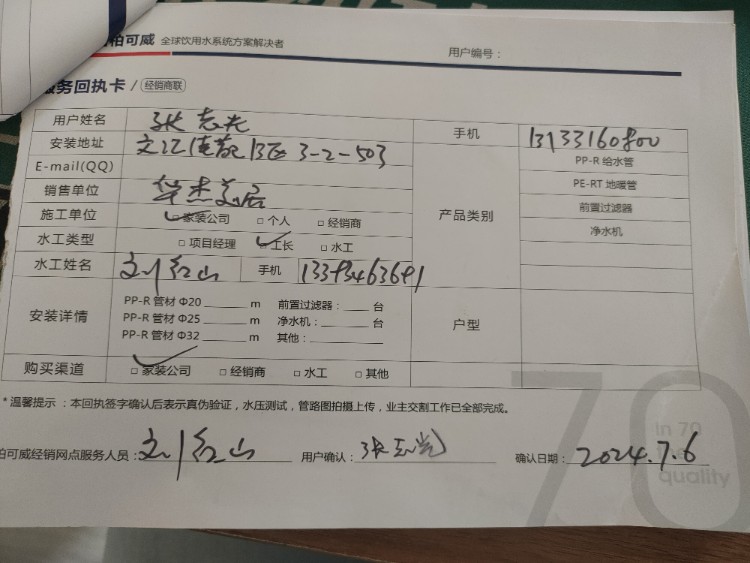 柏可威 全球饮用水系统方案解决者
用户编号：
服务回执卡 / 经销商联
用户姓名 张志光 手机 13133160800
安装地址 B区 3-2-503
E-mail(QQ)
销售单位 华杰美居
施工单位 ☑ 家装公司 □ 个人 □ 经销商
水工类型 □ 项目经理 ☑ 工长 □ 水工
水工姓名 刘红山 手机
产品类别
PP-R 给水管
PE-RT 地暖管
前置过滤器
净水机
安装详情
PP-R 管材 Φ20 ____ m 前置过滤器：____ 台
PP-R 管材 Φ25 ____ m 净水机：____ 台
PP-R 管材 Φ32 ____ m 其他：____
户型
购买渠道 ☑ 家装公司 □ 经销商 □ 水工 □ 其他
* 温馨提示：本回执签字确认后表示真伪验证，水压测试，管路图拍摄上传，业主交割工作已全部完成。
柏可威经销网点服务人员：刘红山 用户确认：张志光 确认日期：2024.7.6
70
in 70
the
quality